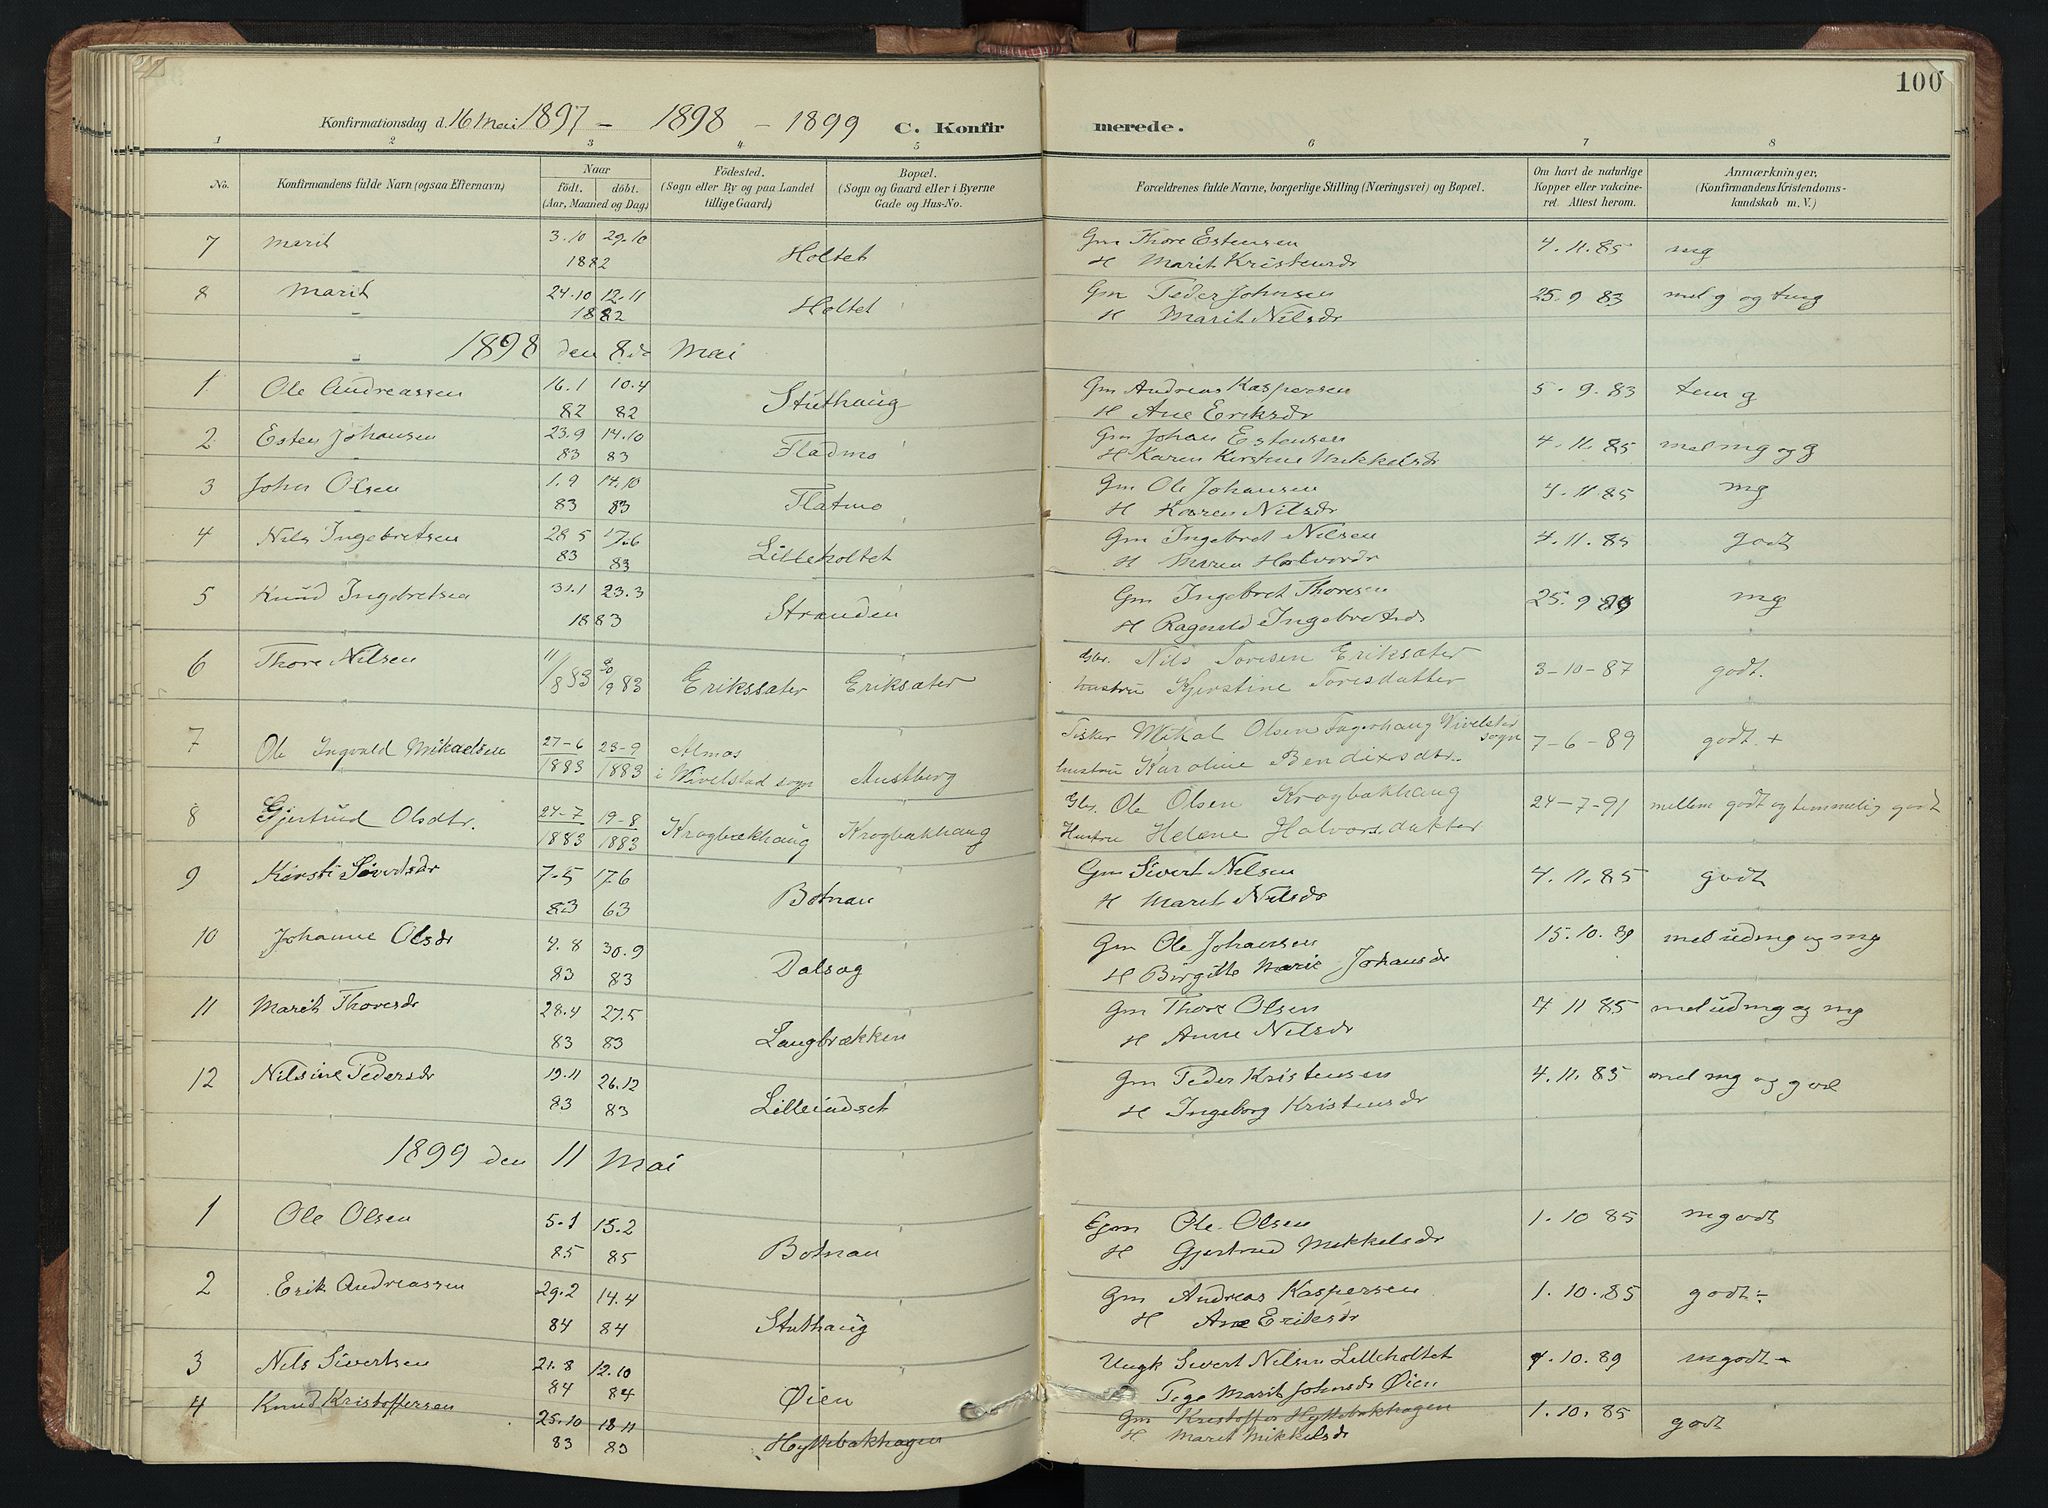 100
Konfirmationsdag d. 16 Mai 1897 – 1898 – 1899 C. Konfir merede.
1 2 3 4 5 6 7 8
No. Konfirmandens fulde Navn (ogsaa Efternavn) Naar født. døbt. (Aar, Maaned og Dag) Fødested. (Sogn eller By og paa Landet tillige Gaard) Bopæl. (Sogn og Gaard eller i Byerne Gade og Hus-No. Forældrenes fulde Navne, borgerlige Stilling (Næringsvei) og Bopæl. Om havt de naturlige Kopper eller vakcineret. Attest herom. Anmærkninger. (Konfirmandens Kristendomskundskab m. V.)
7 Marit 3.10 29.10 Holtet Gm Thore Estensen 4.11.85 mg
1882 H Marit Kristensdr
8 Marit 24.10 12.11 Holtet Gm Peder Johnsen 25.9 83 mel g og tmg
1882 H Marit Nilsdr
1898 den 8de Mai
1 Ole Andreassen 16.1 10.4 Stuthaug Gm Andreas Kaspersen 5.9.83 tem g
82 82 H Ane Eriksdr
2 Esten Johansen 23.9 14.10 Fladmo Gm Johan Estensen 4.11.85 mel mg og g
83 83 H Karen Kirstine Mikkelsdr
3 John Olsen 1.9 14.10 Flatmo Gm Ole Johansen 4.11.85 mg
83 83 H Karen Nilsdr
4 Nils Ingebretsen 28 5 17.6 Lilleholtet Gm Ingebret Nilsen 4.11.85 godt
83 83 H Maren Halvordr
5 Knud Ingebretsen 31.1 23.3 Stranden Gm Ingebret Thoresen 25.9 mg
1883 H Ragnild Ingebretsd
6 Thore Nilsen Erikssæter Eriksæter Gbr. Nils Toresen Eriksæter 3-10-87 godt.
hustru Kjerstine Toresdatter
7 Ole Ingvald Mikaelsen 27-6 23-9 Almas Austberg Fisker Mikal Olsen Fagerhaug Vivelstad sogn 7-6-89 godt. +
1883 1883 i Vivelstad sogn hustru Karoline Bendixsdtr.
8 Gjertrud Olsdtr. 24-7 19-8 Krogbækhaug Krogbakhaug Gbr. Ole Olsen Krogbakhaug 24-7-91 mellem godt og temmelig godt
1883 1883 Hustru Helene Halvorsdatter
9 Kirsti Sivertsdr 7.5 17.6 Botnan Gm Sivert Nilsen 4.11.85 godt
83 63 H Marit Nilsdr
10 Johanne Olsdr 4.8 30.9 Dalsag Gm Ole Johansen 15.10.89 mel udmg og mg
83 83 H Birgitte Marie Johansdr
11 Marit Thoresdr 28.4 27.5 Langbrækken Gm Thore Olsen 4 11 85 mel udmg og mg
83 83 H Anne Nilsdr
12 Nilsine Pedersdr 19.11 26.12 Lilleindset Gm Peder Kristensen 4.11.85 mel mg og god
83 83 H Ingeborg Kristensdr
1899 den 11 Mai
1 Ole Olsen 5.1 15.2 Botnan Egm Ole Olsen 1.10 85 mgodt
85 85 H Gjertrud Mikkelsdr
2 Erik Andreassen 29.2 14.4 Stuthaug Gm Andreas Kaspersen 1.10.85 godt÷
84 84 H Ane Eriksdr
3 Nils Sivertsen 21.8 12.10 Øien Ungk Sivert Nilsen Lilleholtet 4.10.89 mgodt -
84 84 Pige Marit Johnsdr Øien
4 Knud Kristoffersen 25.10 18.11 Hyttebakhagen Gm Kristoffer Hyttebakhagen 1.10.85 godt
83 83 H Marit Mikkelsdr